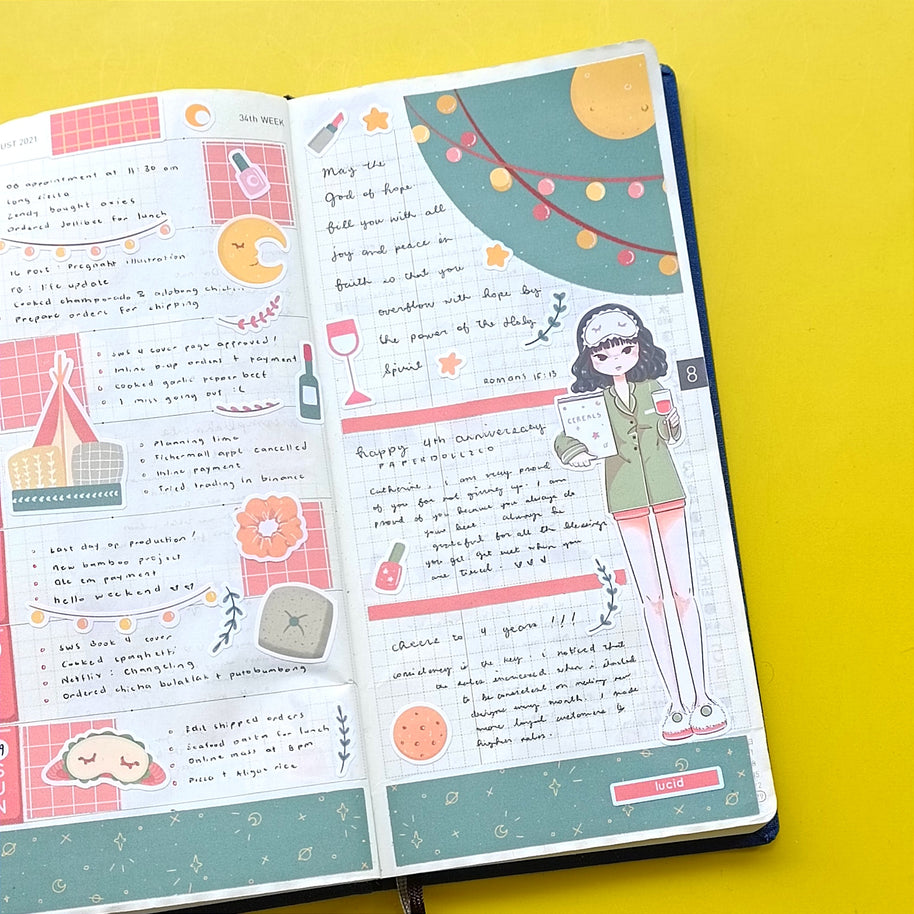 UST 2021
34th WEEK
OB appointment at 11:30 am
Long siesta
Candy bought oxies
Ordered Jollibee for lunch
IG Post : Pregnant illustration
FB : life update
Cooked champorado & adobong
Prepare orders for shipping
SWS 4 cover page approved!
Inline p-up orders + payment
Cooked garlic pepper beef
I miss going out :(
Planning time
Fishermall appt cancelled
Inline payment
Tried trading in binance
Last day of production!
New bamboo project
payment
Hello weekend ♥♥
SWS Book 4 cover
Cooked spaghetti
Netflix : Changeling
Ordered chicha bulaklak + putobumbong
9
SUN
Edit shipped orders
Seafood pasta for lunch
Online mass at 8pm
Pizza + Aligue rice
May the
God of hope
fill you with all
joy and peace in
faith so that you
overflow with hope by
the power of the Holy
Spirit
ROMANS 15:13
8
CEREALS
happy 4th anniversary
PAPERDOLLZCO
Catherine, i am very proud
of you for not giving up. I am
proud of you because you always do
your best. Always be
grateful for all the blessings
you get. Get rest when you
are tired. ♥♥♥
Cheers to 4 years!!!
consistency is the key. i noticed that
the sales increased when i started
to be consistent on making new
designs every month. I made
more loyal customers &
higher sales.
lucid